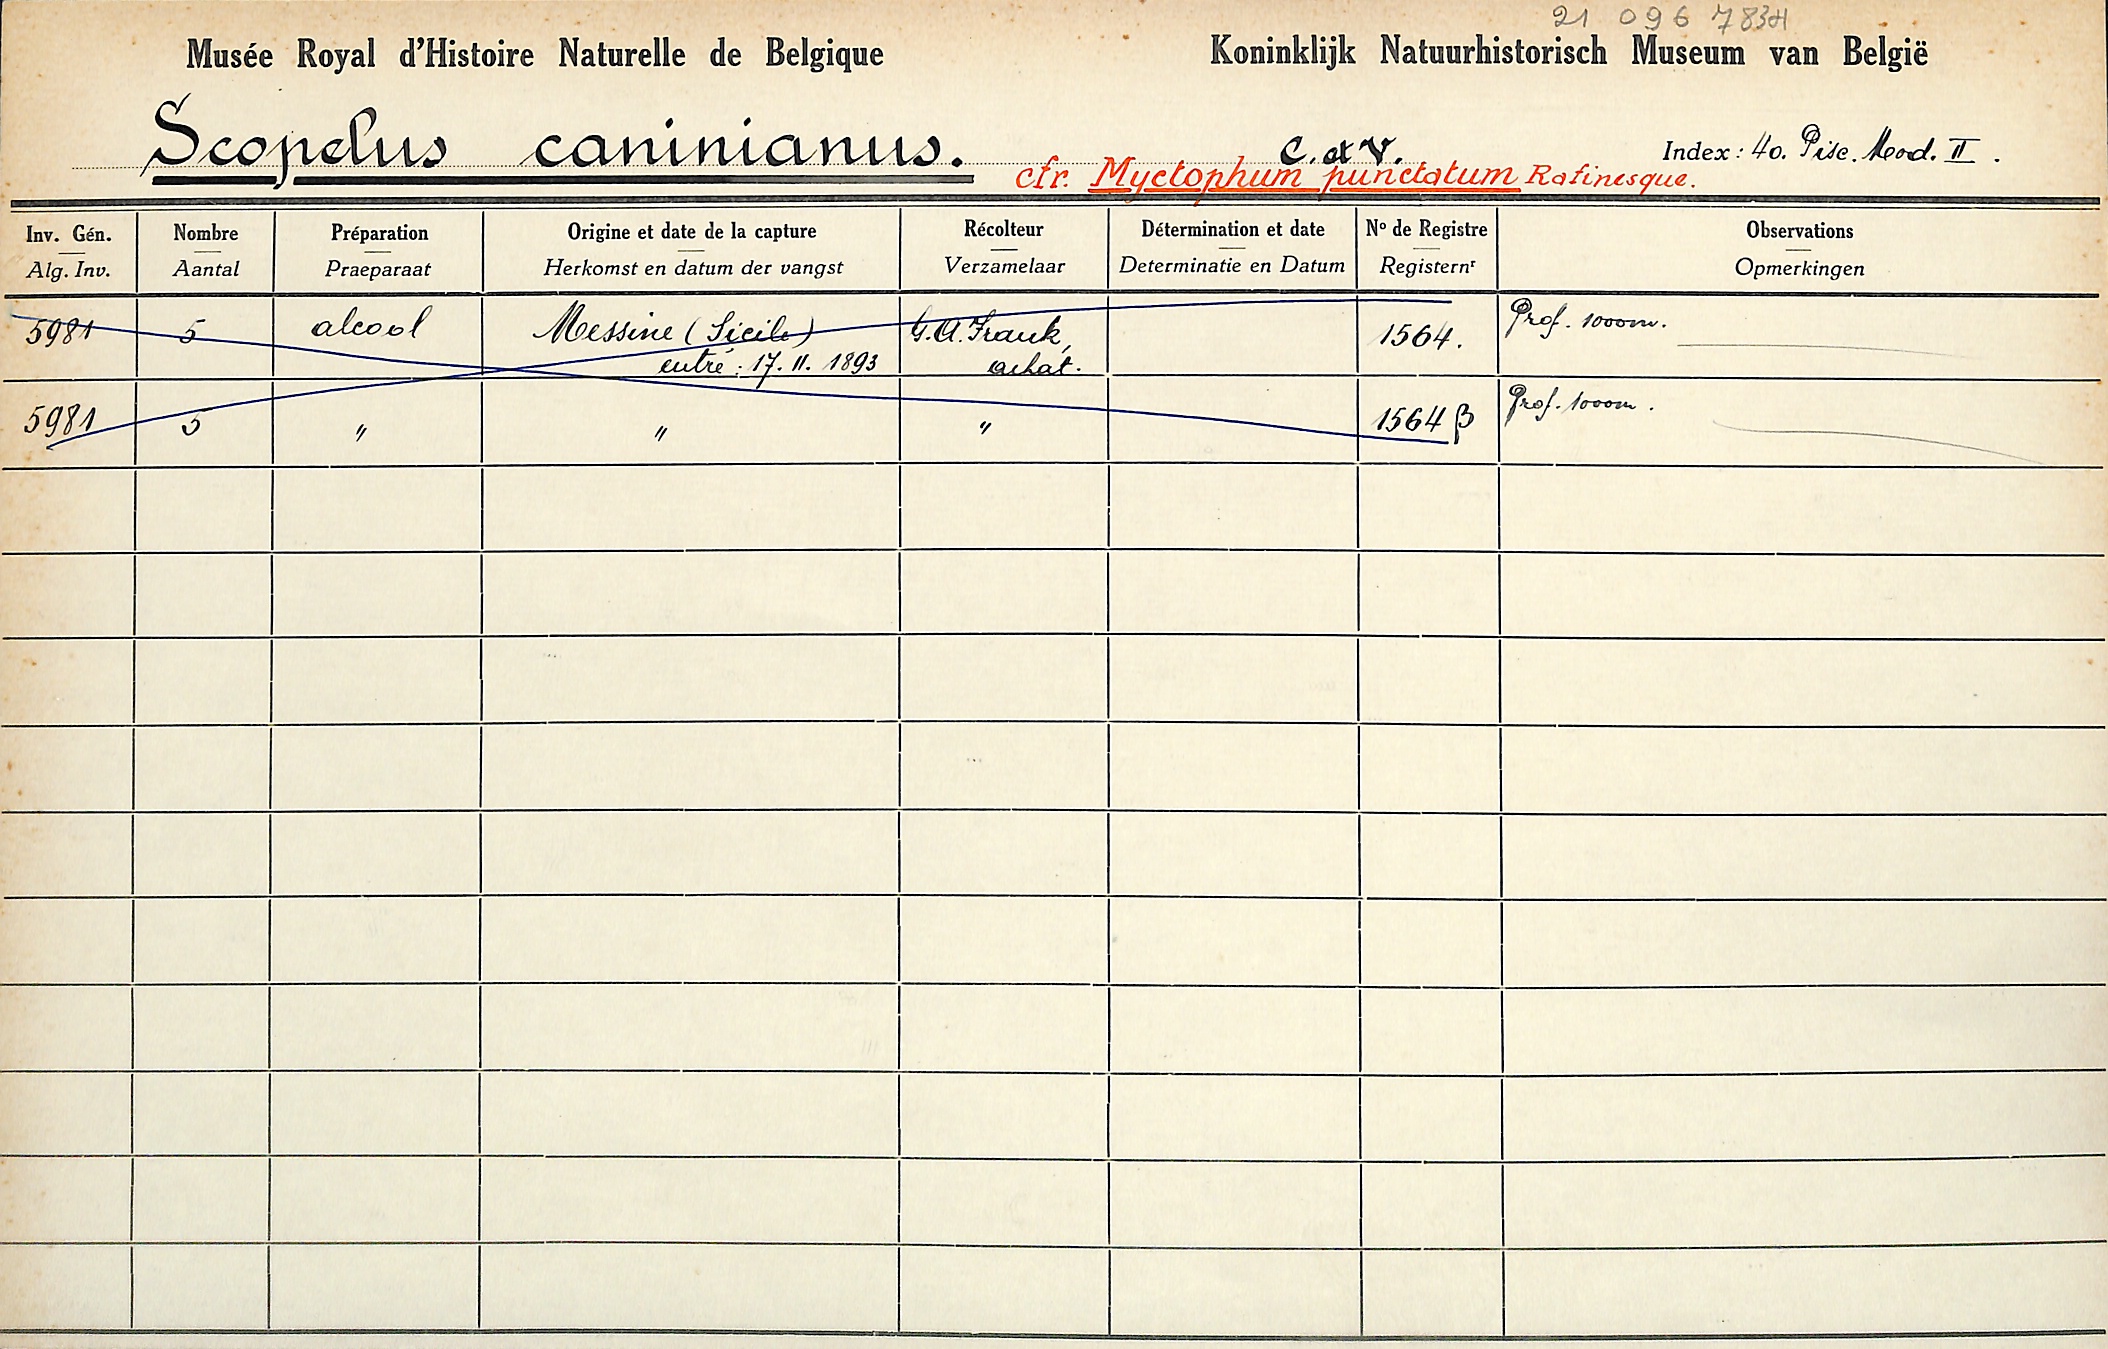 21 096 7834
Musée Royal d'Histoire Naturelle de Belgique Koninklijk Natuurhistorisch Museum van België
Scopelus caninianus. C. et V. Index: 40. Pisc. Mod. II.
cfr. Myctophum punctatum Rafinesque.
Inv. Gén. Nombre Préparation Origine et date de la capture Récolteur Détermination et date No de Registre Observations
Alg. Inv. Aantal Praeparaat Herkomst en datum der vangst Verzamelaar Determinatie en Datum Registernr Opmerkingen
5981 5 alcool Messine (Sicile) G.A. Frank, 1564. Prof. 1000m.
entré: 17. II. 1893 achat.
5981 5 " " " 1564 β Prof. 1000m.